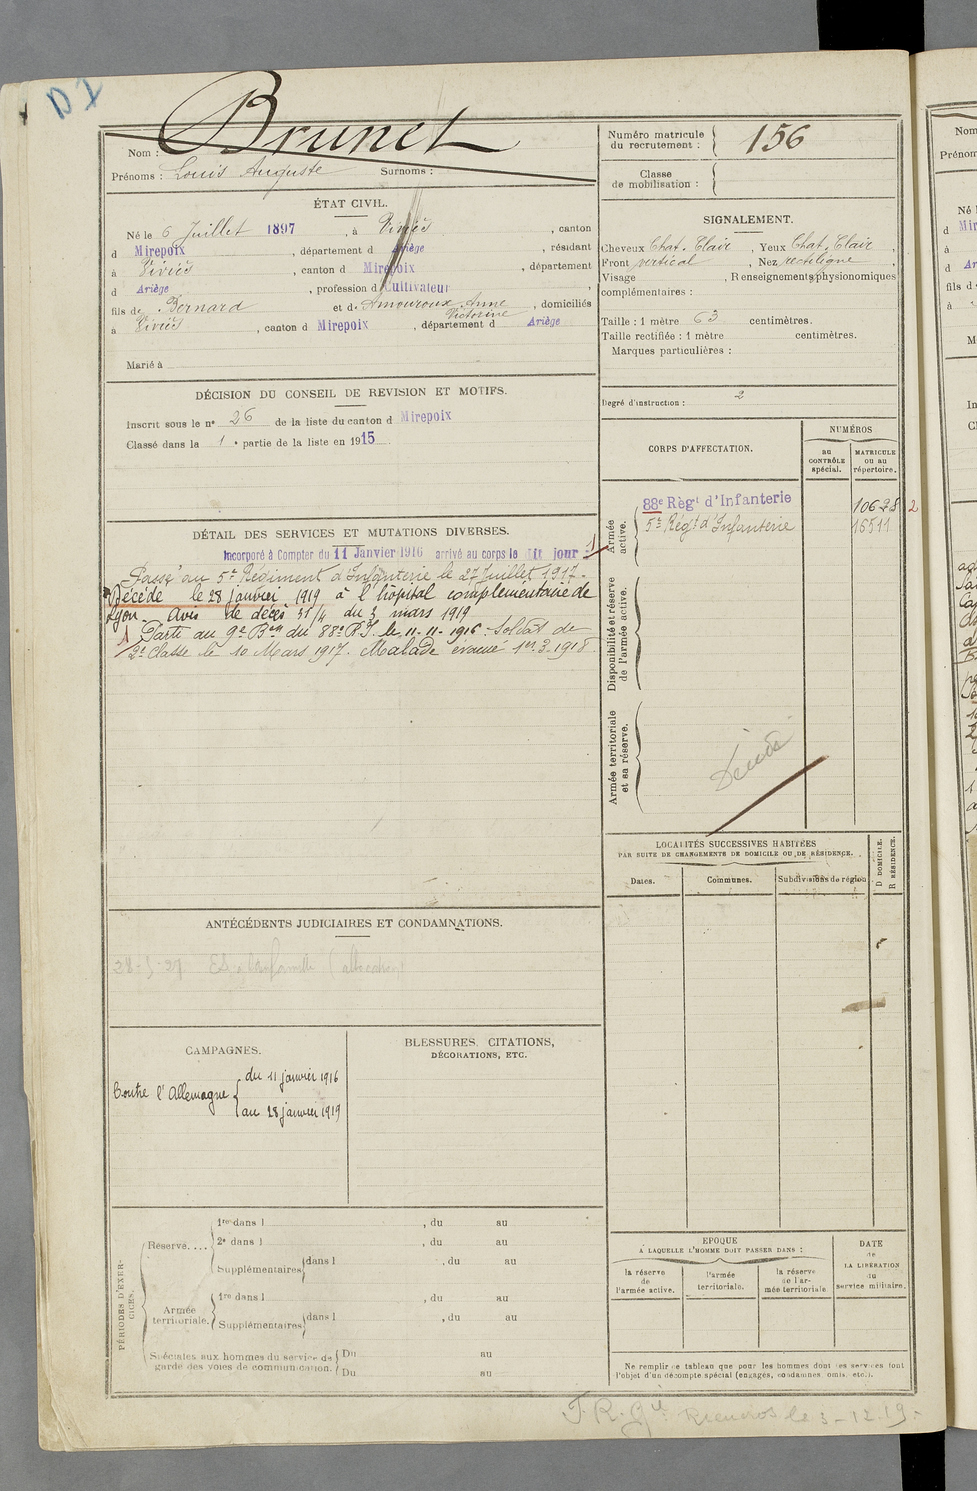 D I
Brunet
Nom :
Prénoms : Louis Auguste Surnoms :
ÉTAT CIVIL.
Né le 6 Juillet 1897, à Viviès, canton
d Mirepoix, département d Ariège, résidant
à Viviès, canton d Mirepoix, département
d Ariège, profession d Cultivateur
fils de Bernard et de Amouroux Anne Victorine, domiciliés
à Viviès, canton d Mirepoix, département d Ariège
Marié à
DÉCISION DU CONSEIL DE REVISION ET MOTIFS.
Inscrit sous le n° 26 de la liste du canton d Mirepoix
Classé dans la 1e partie de la liste en 1915
DÉTAIL DES SERVICES ET MUTATIONS DIVERSES.
Incorporé à Compter du 11 Janvier 1916 arrivé au corps le dit jour 1
Passé au 5e Régiment d'Infanterie le 27 Juillet 1917.
Décédé le 28 janvier 1919 à l'hôpital complémentaire de
Lyon. Avis de décès du 3 mars 1919
1 Parti au 9e Bon du 88e R.I. le 11-11-1916. Soldat de
2e Classe le 10 Mars 1917. Malade évacué 1er.3.1918.
ANTÉCÉDENTS JUDICIAIRES ET CONDAMNATIONS.
CAMPAGNES.
Contre l'Allemagne
du 11 janvier 1916
au 28 janvier 1919
BLESSURES, CITATIONS,
DÉCORATIONS, ETC.
PÉRIODES D'EXERCICES.
Réserve....
1re dans l , du au
2e dans l , du au
Supplémentaires dans l , du au
Armée territoriale.
1re dans l , du au
Supplémentaires dans l , du au
Spéciales aux hommes du service de garde des voies de communication.
Du au
Du au
Numéro matricule du recrutement : 156
Classe de mobilisation :
SIGNALEMENT.
Cheveux Chat. Clair, Yeux Chat. Clair,
Front vertical, Nez rectiligne,
Visage , Renseignements physionomiques
complémentaires :
Taille : 1 mètre 63 centimètres.
Taille rectifiée : 1 mètre centimètres.
Marques particulières :
Degré d'instruction : 2
CORPS D'AFFECTATION.
NUMÉROS
au CONTRÔLE spécial.
MATRICULE ou au répertoire.
Armée active.
88e Régt d'Infanterie 10628 2
5e Régt d'Infanterie 16511
Disponibilité et réserve de l'armée active.
Armée territoriale et sa réserve.
Décédé
LOCALITÉS SUCCESSIVES HABITÉES
PAR SUITE DE CHANGEMENTS DE DOMICILE OU DE RÉSIDENCE.
D DOMICILE.
R RÉSIDENCE.
Dates.
Communes.
Subdivisions de région
EPOQUE
A LAQUELLE L'HOMME DOIT PASSER DANS :
la réserve de l'armée active.
l'armée territoriale.
la réserve de l'armée territoriale
DATE de LA LIBÉRATION du service militaire.
Ne remplir ce tableau que pour les hommes dont les services font
l'objet d'un décompte spécial (engagés, condamnés, omis, etc.).
le 3-12.19.